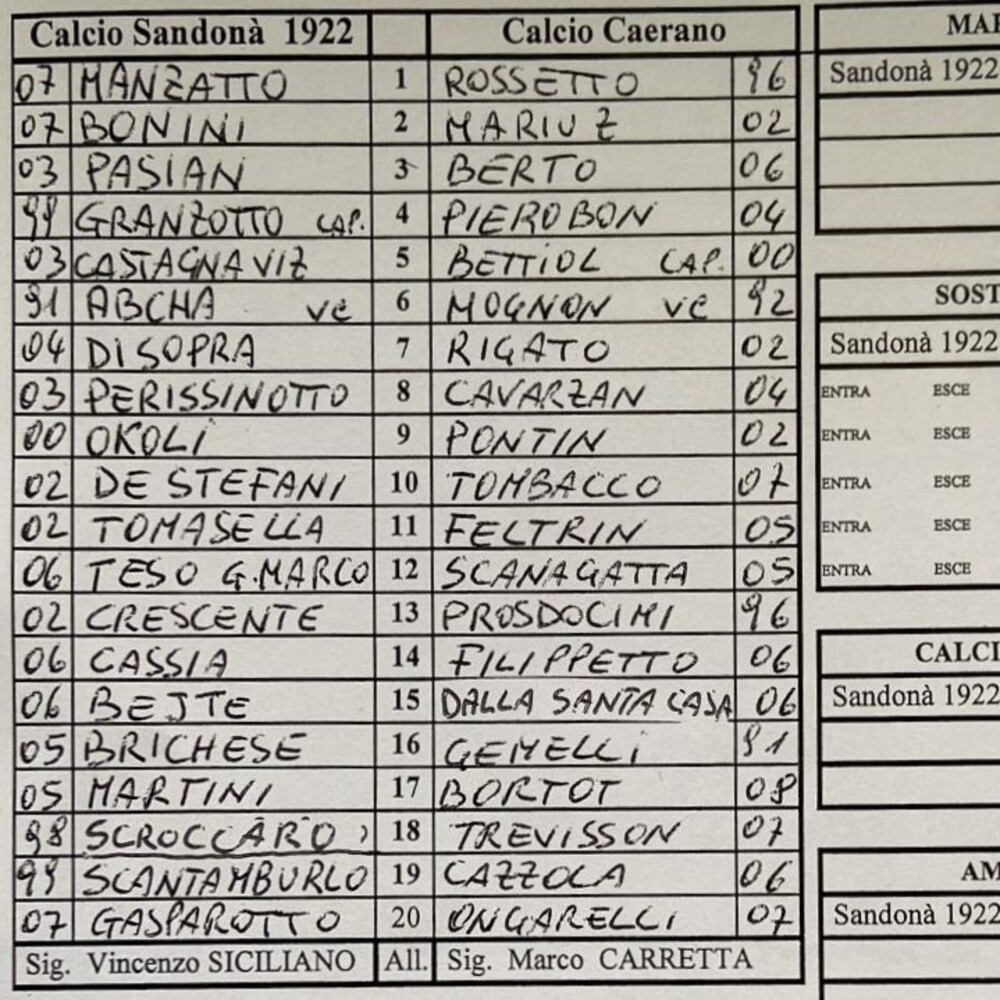 Calcio Sandonà 1922 Calcio Caerano
07 MANZATTO 1 ROSSETTO 96 Sandonà 1922
07 BONINI 2 MARIUZ 02
03 PASIAN 3 BERTO 06
99 GRANZOTTO CAP. 4 PIEROBON 04
03 CASTAGNAVIZ 5 BETTIOL CAP. 00
91 ABCHA VC 6 MOGNON VC 92 SOST
04 DI SOPRA 7 RIGATO 02 Sandonà 1922
03 PERISSINOTTO 8 CAVARZAN 04 ENTRA ESCE
00 OKOLI 9 PONTIN 02 ENTRA ESCE
02 DE STEFANI 10 TOMBACCO 07 ENTRA ESCE
02 TOMASELLA 11 FELTRIN 05 ENTRA ESCE
06 TESO G.MARCO 12 SCANAGATTA 05 ENTRA ESCE
02 CRESCENTE 13 PROSDOCIMI 96
06 CASSIA 14 FILIPPETTO 06 CALCI
06 BEJTE 15 DALLA SANTA CASA 06 Sandonà 1922
05 BRICHESE 16 GEMELLI 91
05 MARTINI 17 BORTOT 08
98 SCROCCARO 18 TREVISSON 07
99 SCANTAMBURLO 19 CAZZOLA 06 AM
07 GASPAROTTO 20 ONGARELLI 07 Sandonà 1922
Sig. Vincenzo SICILIANO All. Sig. Marco CARRETTA